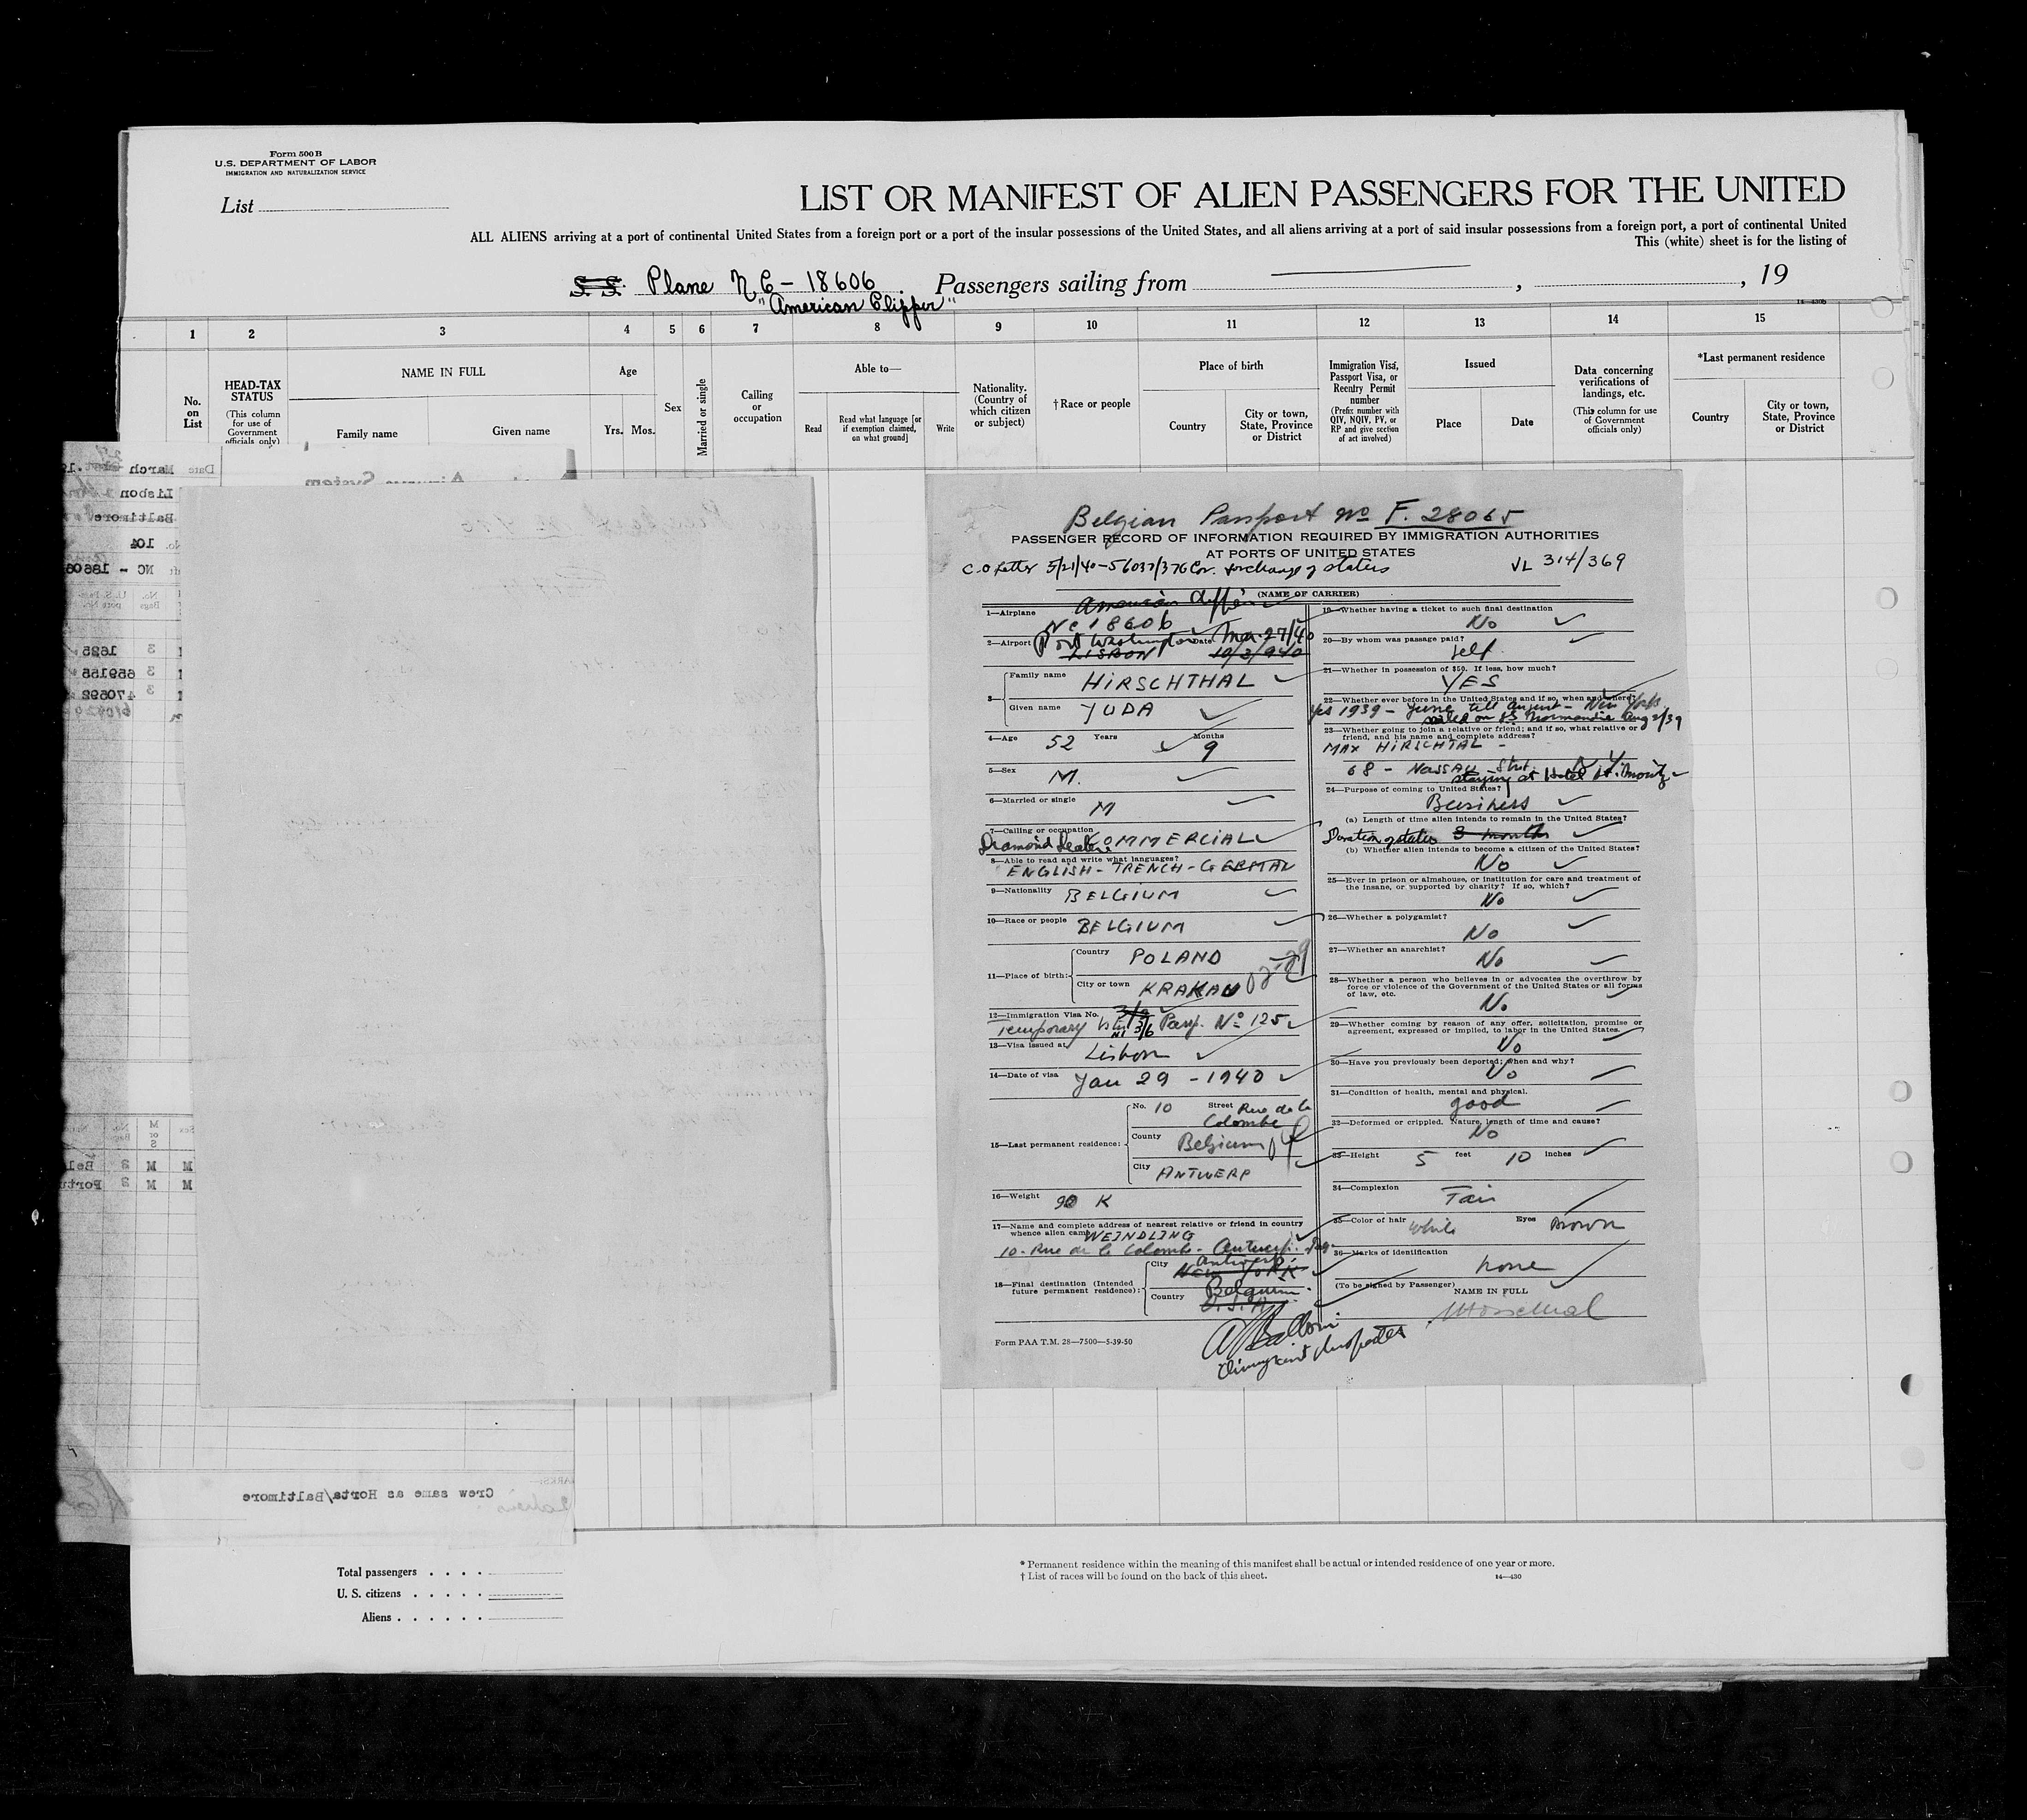 Form 500B
U.S. DEPARTMENT OF LABOR
IMMIGRATION AND NATURALIZATION SERVICE
List
LIST OR MANIFEST OF ALIEN PASSENGERS FOR THE UNITED
ALL ALIENS arriving at a port of continental United States from a foreign port or a port of the insular possessions of the United States, and all aliens arriving at a port of said insular possessions from a foreign port, a port of continental United
This (white) sheet is for the listing of
S. S. Plane NC-18606 Passengers sailing from , , 19
"American Clipper"
14—430B
1 2 3 4 5 6 7 8 9 10 11 12 13 14 15
No. on List
HEAD-TAX STATUS
(This column for use of Government officials only)
NAME IN FULL
Family name Given name
Age
Yrs. Mos.
Sex
Married or single
Calling or occupation
Able to—
Read
Read what language [or if exemption claimed, on what ground]
Write
Nationality. (Country of which citizen or subject)
†Race or people
Place of birth
Country
City or town, State, Province or District
Immigration Visa, Passport Visa, or Reentry Permit number
(Prefix number with QIV, NQIV, PV, or RP and give section of act involved)
Issued
Place Date
Data concerning verifications of landings, etc.
(This column for use of Government officials only)
*Last permanent residence
Country
City or town, State, Province or District
Date March
Lisbon
Baltimore
No. 104
NC - 18606
Airways System
1625
659158
470592
Crew same as Horta/Baltimore
Belgian Passport No F. 28065
PASSENGER RECORD OF INFORMATION REQUIRED BY IMMIGRATION AUTHORITIES
AT PORTS OF UNITED STATES
C.O Letter 5/21/40-56037/376 for change of status VL 314/369
American Clipper (NAME OF CARRIER)
1—Airplane NC 18606
2—Airport Port Washington Date Mar 27/40
LISBON 10/3/940
3— Family name HIRSCHTHAL
Given name YUDA
4—Age 52 Years Months 9
5—Sex M.
6—Married or single M
7—Calling or occupation
Diamond Dealer COMMERCIAL
8—Able to read and write what languages?
ENGLISH - FRENCH - GERMAN
9—Nationality BELGIUM
10—Race or people BELGIUM
11—Place of birth: Country POLAND
City or town KRAKAU
12—Immigration Visa No.
Temporary Visit 3/6 Passp. No 125
13—Visa issued at Lisbon
14—Date of visa Jan 29 - 1940
15—Last permanent residence: No. 10 Street Rue de la Colombe
County Belgium
City ANTWERP
16—Weight 90 K
17—Name and complete address of nearest relative or friend in country
whence alien came WEINDLING
10- Rue de la Colombe - Antwerp.
18—Final destination (Intended
future permanent residence): City Antwerp
NEW YORK
Country Belgium
U.S.A.
Form PAA T.M. 28—7500—5-39-50
19—Whether having a ticket to such final destination
No
20—By whom was passage paid?
self
21—Whether in possession of $50. If less, how much?
YES
22—Whether ever before in the United States and if so, when and where?
Yes 1939 - June till August - New York
sailed on SS Normandie Aug 2/39
23—Whether going to join a relative or friend; and if so, what relative or
friend, and his name and complete address?
MAX HIRSCHTAL -
68 - NASSAU Street N Y
staying at Hotel St. Moritz
24—Purpose of coming to United States?
Business
(a) Length of time alien intends to remain in the United States?
Duration of status 3 months
(b) Whether alien intends to become a citizen of the United States?
No
25—Ever in prison or almshouse, or institution for care and treatment of
the insane, or supported by charity? If so, which?
No
26—Whether a polygamist?
No
27—Whether an anarchist?
No
28—Whether a person who believes in or advocates the overthrow by
force or violence of the Government of the United States or all forms
of law, etc.
No
29—Whether coming by reason of any offer, solicitation, promise or
agreement, expressed or implied, to labor in the United States.
No
30—Have you previously been deported; when and why?
No
31—Condition of health, mental and physical.
good
32—Deformed or crippled. Nature, length of time and cause?
No
33—Height 5 feet 10 inches
34—Complexion Fair
35—Color of hair white Eyes Brown
36—Marks of identification
none
(To be signed by Passenger)
NAME IN FULL
Immigrant Inspector
Total passengers . . . .
U. S. citizens . . . . .
Aliens . . . . . .
* Permanent residence within the meaning of this manifest shall be actual or intended residence of one year or more.
† List of races will be found on the back of this sheet.
14—430